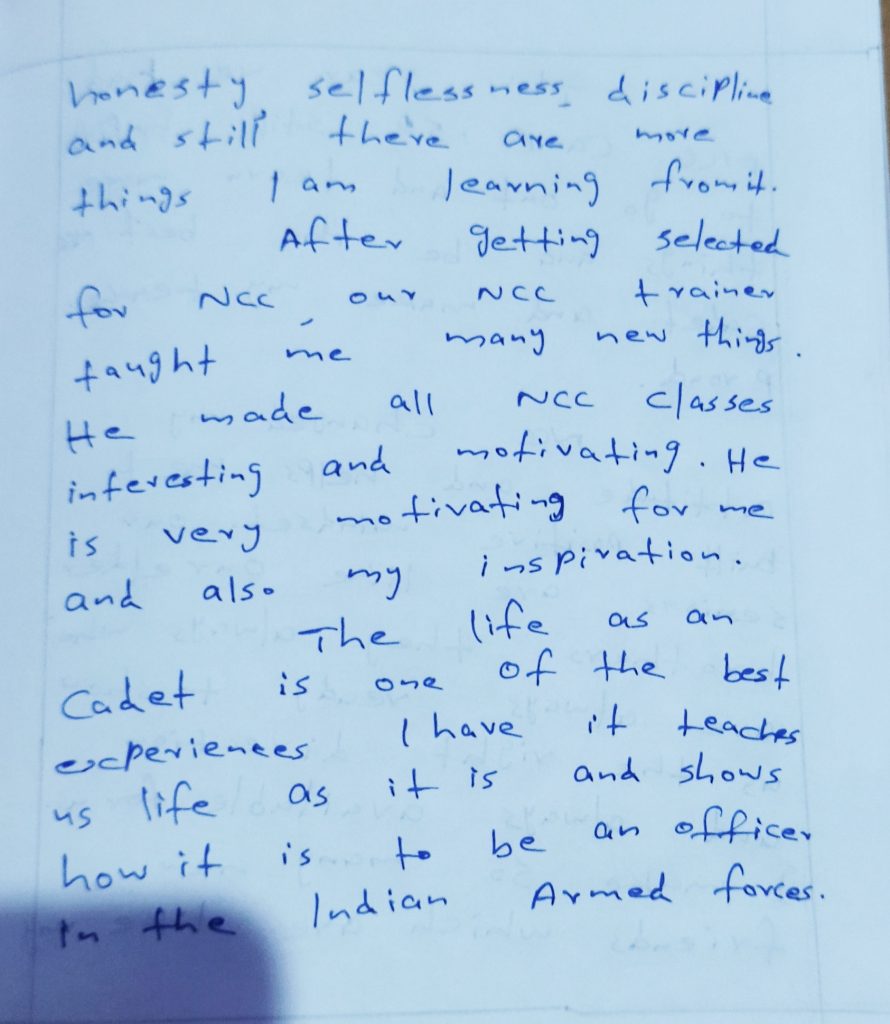 honesty, selflessness, discipline
and still there are more
things I am learning from it.
After getting selected
for NCC, our NCC trainer
taught me many new things.
He made all NCC classes
interesting and motivating. He
is very motivating for me
and also my inspiration.
The life as an
Cadet is one of the best
experiences I have it teaches
us life as it is and shows
how it is to be an officer
In the Indian Armed forces.